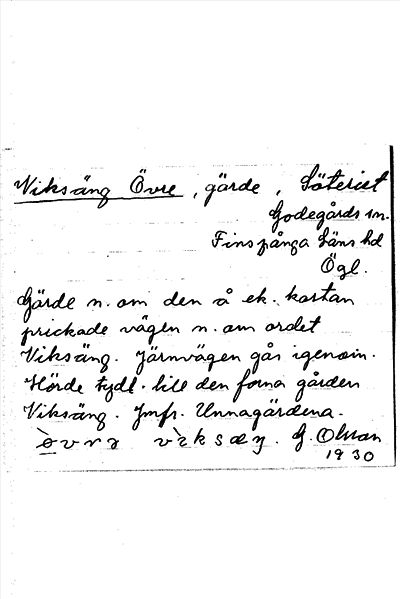 Viksäng Övre, gärde, Säteriet
Godegårds sn.
Finspånga läns hd
Ögl.
Gärde n. om den å ek. kartan
prickade vägen n. om ordet
Viksäng. Järnvägen går igenom.
Hörde tydl. till den forna gården
Viksäng. Jmfr. Unnagärdena.
G. Olson
1930